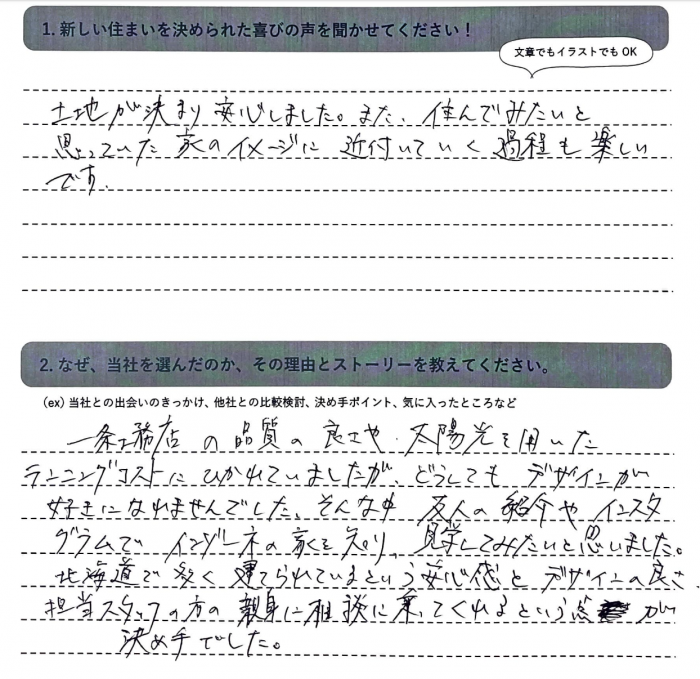 1. 新しい住まいを決められた喜びの声を聞かせてください！
文章でもイラストでも OK
土地が決まり安心しました。また、住んでみたいと
思っていた家のイメージに近付いていく過程も楽しい
です。
2. なぜ、当社を選んだのか、その理由とストーリーを教えてください。
(ex) 当社との出会いのきっかけ、他社との比較検討、決め手ポイント、気に入ったところなど
一条工務店の品質の良さや、太陽光を用いた
ランニングコストにひかれていましたが、どうしてもデザインが
好きになれませんでした。そんな中 友人の紹介やインスタ
グラムで イゾーネの家を知り、見学してみたいと思いました。
北海道で多く建てられているという安心感とデザインの良さ、
担当スタッフの方の親身に相談に乗ってくれるという点が
決め手でした。